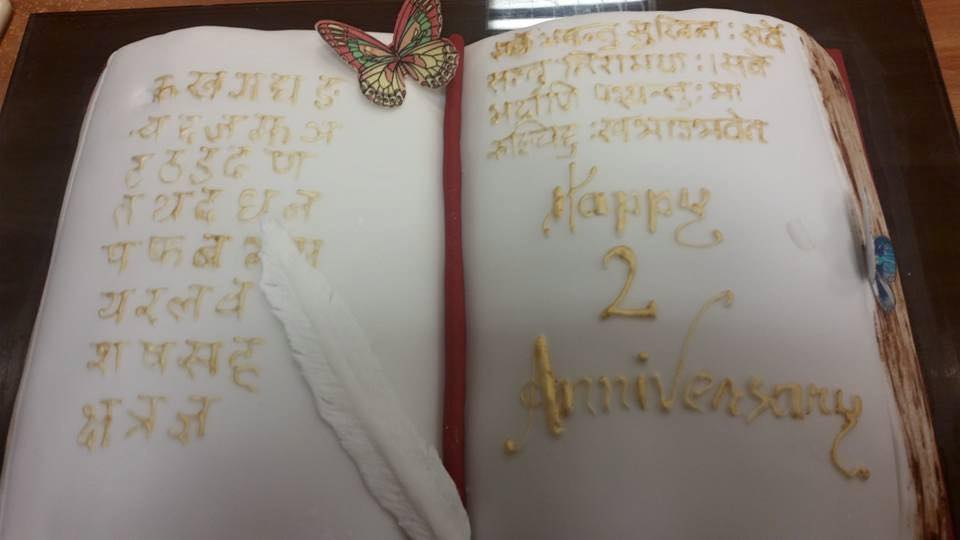 क ख ग घ ङ
च छ ज झ ञ
ट ठ ड ढ ण
त थ द ध न
प फ ब भ म
य र ल व
श ष स ह
क्ष त्र ज्ञ
भवन्तु सुखिन : सर्वे
सन्तु निरामया : । सर्वे
भद्राणि पश्यन्तु : मा
Happy
2
Anniversary